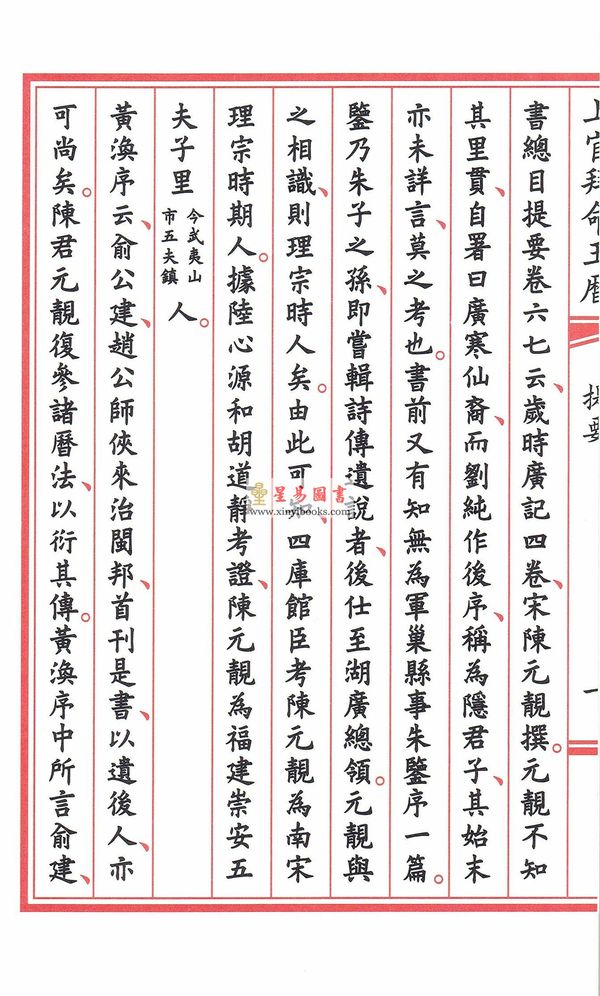 上官拜命玉曆
提要
一
書總目提要卷六七云、歲時廣記四卷、宋陳元靚撰。元靚不知
其里貫、自署曰廣寒仙裔、而劉純作後序、稱為隱君子、其始末
亦未詳言、莫之考也。書前又有知無為軍巢縣事朱鑒序一篇。
鑒乃朱子之孫、即嘗輯詩傳遺說者、後仕至湖廣總領。元靚與
之相識、則理宗時人矣。由此可 、四庫館臣考陳元靚為南宋
理宗時期人。據陸心源和胡道靜考證、陳元靚為福建崇安五
夫子里今武夷山市五夫鎮人。
黃渙序云、俞公建、趙公師俠來治閩邦、首刊是書、以遺後人、亦
可尚矣。陳君元靚復參諸曆法、以衍其傳。黃渙序中所言俞建、
星易圖書
www.xinyibooks.com